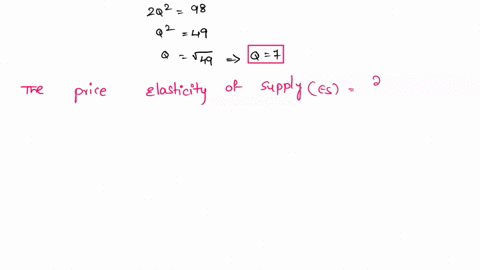 2Q² = 98
Q² = 49
Q = √49 ⇒ Q = 7
The price elasticity of supply (Es) =